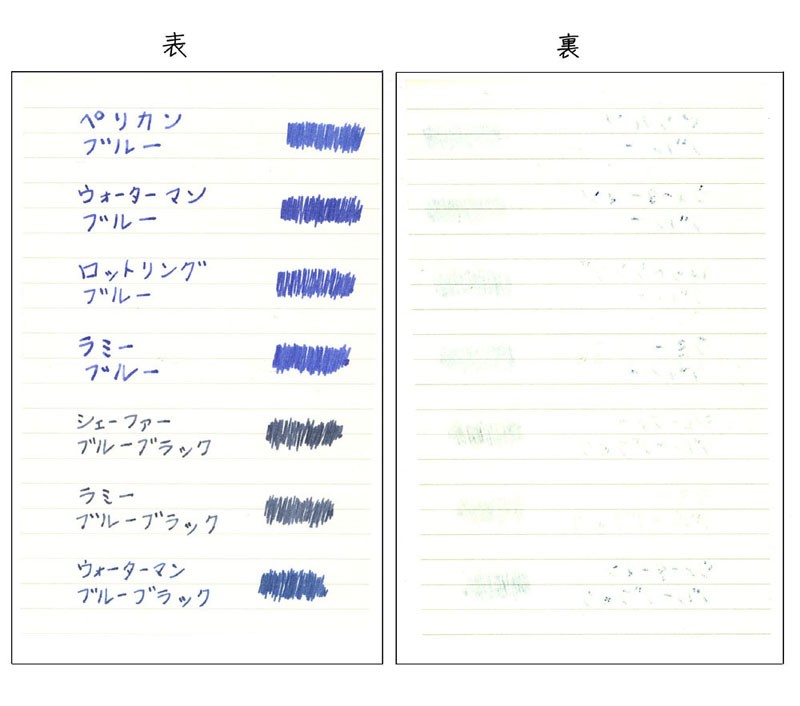 表
裏
ペリカン
ブルー
ウォーターマン
ブルー
ロットリング
ブルー
ラミー
ブルー
シェーファー
ブルーブラック
ラミー
ブルーブラック
ウォーターマン
ブルーブラック